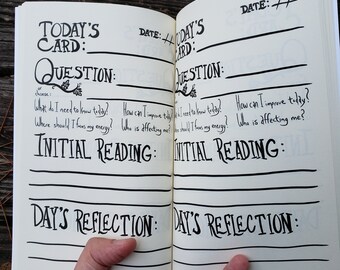 TODAY'S DATE: / /
CARD:
QUESTION:
What do I need to know today? How can I improve today?
Where should I focus my energy? Who is affecting me?
INITIAL READING:
DAY'S REFLECTION:
TODAY'S DATE: / /
CARD:
QUESTION:
do I need to know today? How can I improve today?
should I focus my energy? Who is affecting me?
INITIAL READING:
DAY'S REFLECTION: